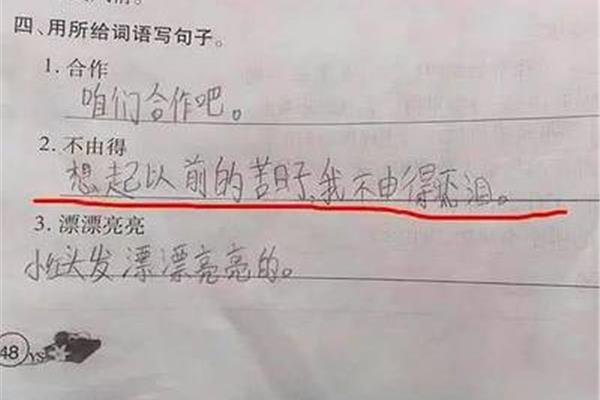 四、用所给词语写句子。
1. 合作
咱们合作吧。
2. 不由得
想起以前的苦日子,我不由得流泪。
3. 漂漂亮亮
小红头发漂漂亮亮的。
48 YS